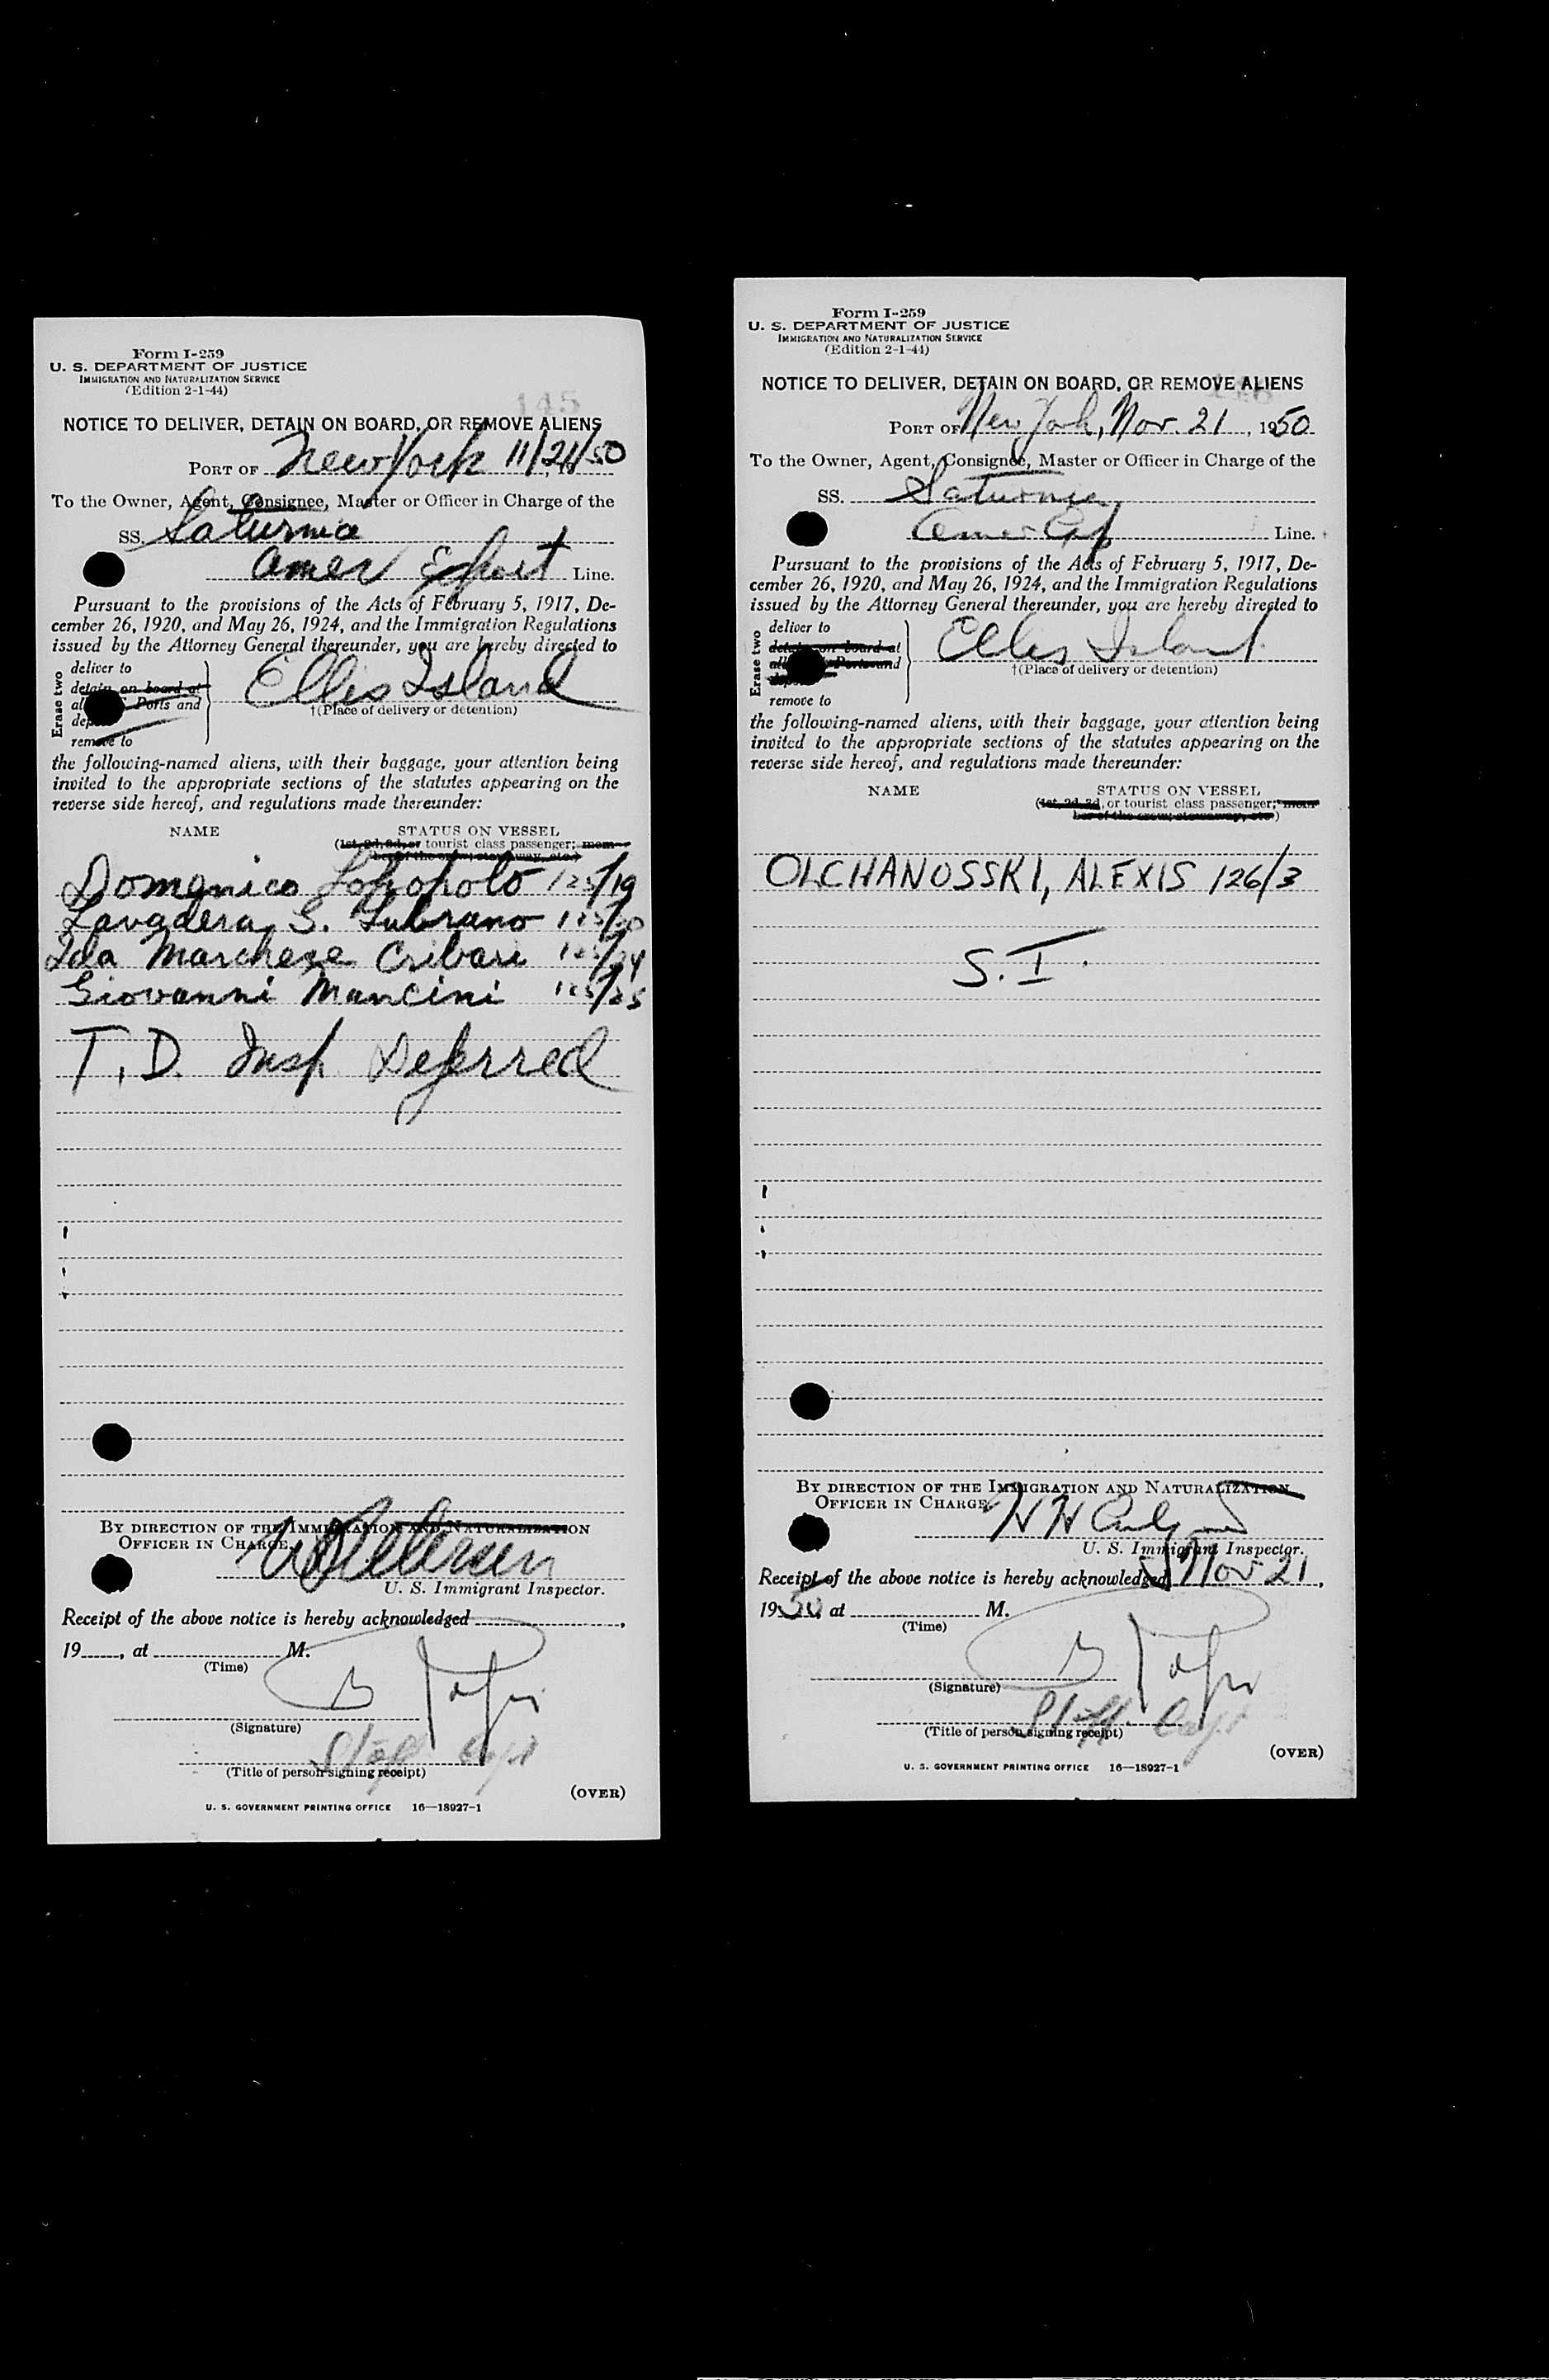 Form I-259
U. S. DEPARTMENT OF JUSTICE
IMMIGRATION AND NATURALIZATION SERVICE
(Edition 2-1-44)
145
NOTICE TO DELIVER, DETAIN ON BOARD, OR REMOVE ALIENS
PORT OF New York 11/21/50
To the Owner, Agent, Consignee, Master or Officer in Charge of the
SS. Saturnia
Amer Export Line.
Pursuant to the provisions of the Acts of February 5, 1917, De-
cember 26, 1920, and May 26, 1924, and the Immigration Regulations
issued by the Attorney General thereunder, you are hereby directed to
Erase two
deliver to
detain on board at
Ports and
remove to
Ellis Island
†(Place of delivery or detention)
the following-named aliens, with their baggage, your attention being
invited to the appropriate sections of the statutes appearing on the
reverse side hereof, and regulations made thereunder:
NAME STATUS ON VESSEL
(1st, 2d, 3d, or tourist class passenger; mem-
ber of the crew; stowaway, etc.)
Domenico 125/19
Lavadera, S. Subrano
Ida Marchese Cribari 125/24
Giovanni Mancini 125/25
T. D. Insp Deferred
BY DIRECTION OF THE IMMIGRATION AND NATURALIZATION
OFFICER IN CHARGE.
Petersen
U. S. Immigrant Inspector.
Receipt of the above notice is hereby acknowledged
19, at M.
(Time)
(Signature)
Staff Capt
(Title of person signing receipt)
(OVER)
U. S. GOVERNMENT PRINTING OFFICE 16—18927-1
Form I-259
U. S. DEPARTMENT OF JUSTICE
IMMIGRATION AND NATURALIZATION SERVICE
(Edition 2-1-44)
NOTICE TO DELIVER, DETAIN ON BOARD, OR REMOVE ALIENS
PORT OF New York, Nov. 21, 1950
To the Owner, Agent, Consignee, Master or Officer in Charge of the
SS. Saturnia
Amer Exp Line.
Pursuant to the provisions of the Acts of February 5, 1917, De-
cember 26, 1920, and May 26, 1924, and the Immigration Regulations
issued by the Attorney General thereunder, you are hereby directed to
Erase two
deliver to
detain on board at
Ports and
remove to
Ellis Island
†(Place of delivery or detention)
the following-named aliens, with their baggage, your attention being
invited to the appropriate sections of the statutes appearing on the
reverse side hereof, and regulations made thereunder:
NAME STATUS ON VESSEL
(1st, 2d, 3d, or tourist class passenger; mem-
ber of the crew; stowaway, etc.)
OLCHANOSSKI, ALEXIS 126/3
S.I.
BY DIRECTION OF THE IMMIGRATION AND NATURALIZATION
OFFICER IN CHARGE.
U. S. Immigrant Inspector.
Receipt of the above notice is hereby acknowledged Nov 21,
1950, at M.
(Time)
(Signature)
Staff Capt
(Title of person signing receipt)
(OVER)
U. S. GOVERNMENT PRINTING OFFICE 16—18927-1